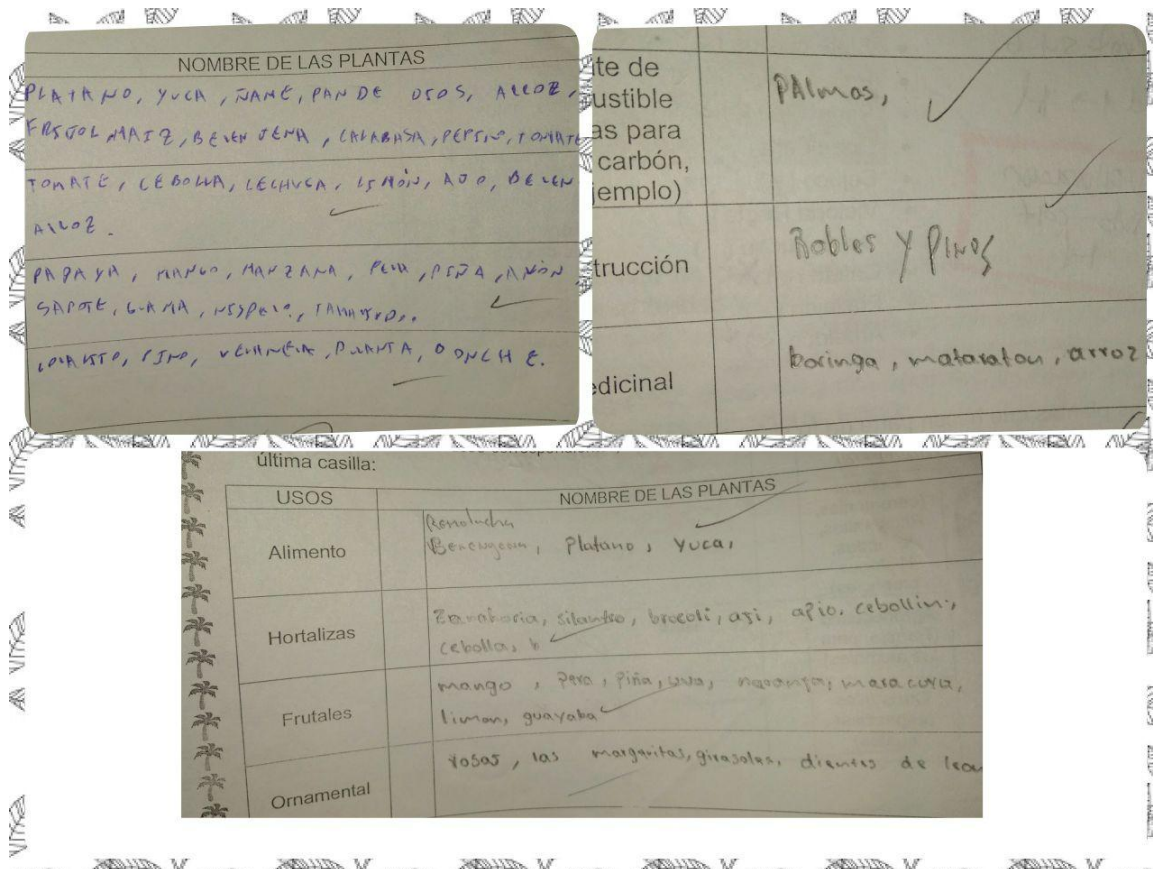 NOMBRE DE LAS PLANTAS
PLATANO, YUCA, ÑAME, PAN DE DIOS, ARROZ,
FRIJOL MAIZ, BERENJENA, CALABASA, PEPINO, TOMATE
TOMATE, CEBOLLA, LECHUGA, LIMÓN, AJO, BEREN
ARROZ.
PAPAYA, MANGO, MANZANA, PERA, PIÑA, ANÓN
SAPOTE, GUAMA, NISPERO,
PINO, PLANTA,
te de
ustible
as para
carbón,
jemplo)
PAlmas,
trucción
Robles y Pinos
edicinal
boringa, mataraton, arroz
última casilla:
USOS
NOMBRE DE LAS PLANTAS
Remolucha
Alimento
Berengena, Platano, Yuca,
Hortalizas
Zanahoria, silantro, brocoli, aji, apio, cebollin,
cebolla, b
Frutales
mango, Pera, Piña, uva, naranja, maracuya,
limon, guayaba
Ornamental
rosas, las margaritas, girasoles, dientes de leon